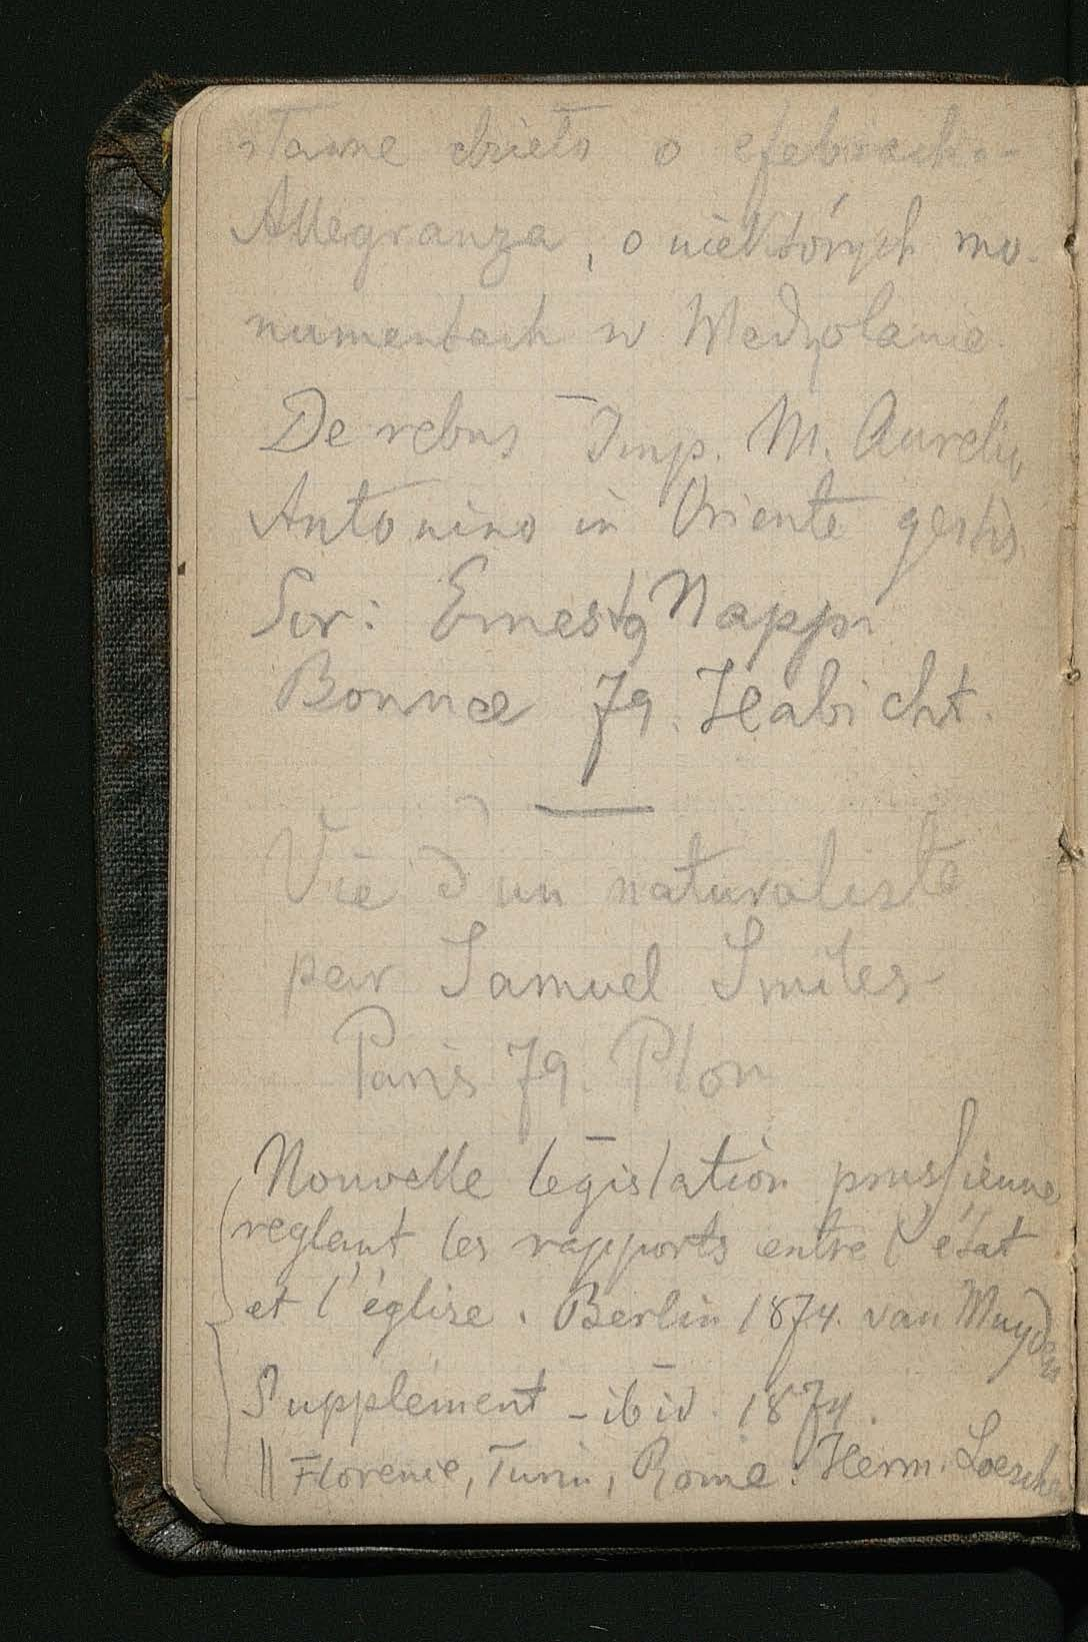 stare dzieło o efebiach -
Allegranza, o niektórych mo-
numentach w Medyolanie.
De rebus Imp. M. Aurelio
Antonino in Oriente gestis.
Scr: Ernestg Napp.
Bonnae 79. Habicht.
Vie d'un naturaliste
par Samuel Smiles -
Paris 79. Plon
Nouvelle législation prussienne
reglant les rapports entre l'état
et l'église. Berlin 1874. van Muyden
Supplément - ibid. 1874.
|| Florence, Turin, Rome. Herm. Loescher